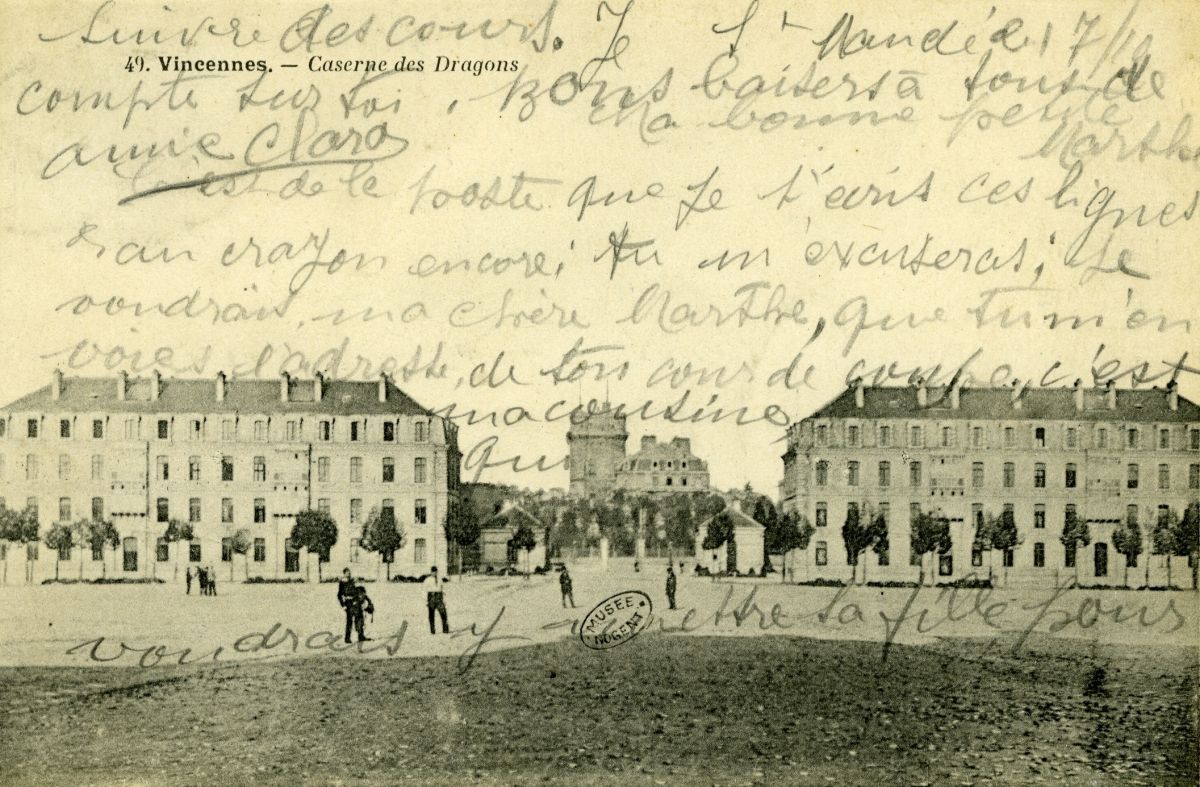 suivre des cours. Je St Mandé le 17/10
49. Vincennes. — Caserne des Dragons
compte sur toi, Bons baisers à tous de
Ma bonne petite
Marthe
amie Clara
C'est de la poste que je t'écris ces lignes
au crayon encore; tu m'excuseras; je
voudrais, ma chère Marthe, que tu m'en
voies l'adresse, de ton cour de coupe, c'est
ma cousine,
qui
voudrais y mettre sa fille pour
MUSÉE
NOGENT